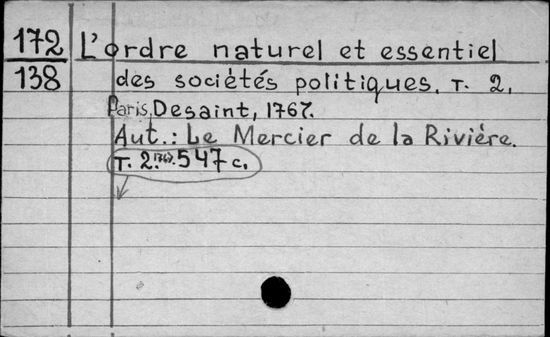 172
138
L'ordre naturel et essentiel
des sociétés politiques. T. 2.
Paris, Desaint, 1767.
Aut.: Le Mercier de la Rivière.
T. 2. 1767. 547 c.